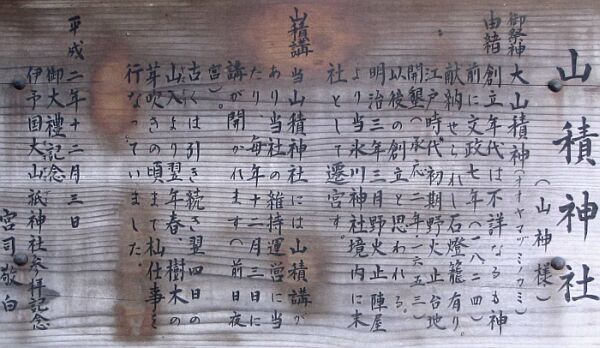 山積神社
(山神様)
御祭神 大山積神(オオヤマヅミノカミ)
由緒 創立年代は不詳なるも神
前に文政七年(一八二四)
献納せられし石燈籠有り。
江戸時代初期野火止台地
開墾(承応二年一六五三)
以後の創立と思われる。
明治三年三月野火止陣屋
より当氷川神社境内に末
社として遷宮す。
山積講 当山積神社には山積講が
あり当社の維持運営に当
たり、毎年十二月三日に
講が開かれます(前日夜
宮)。
古くは引き続き翌四日の
山入より翌年春、樹木の
芽吹きの頃まで杣仕事を
行なっていました。
平成二年十二月三日
御大禮記念
伊予国大山祇神社参拝記念
宮司敬白